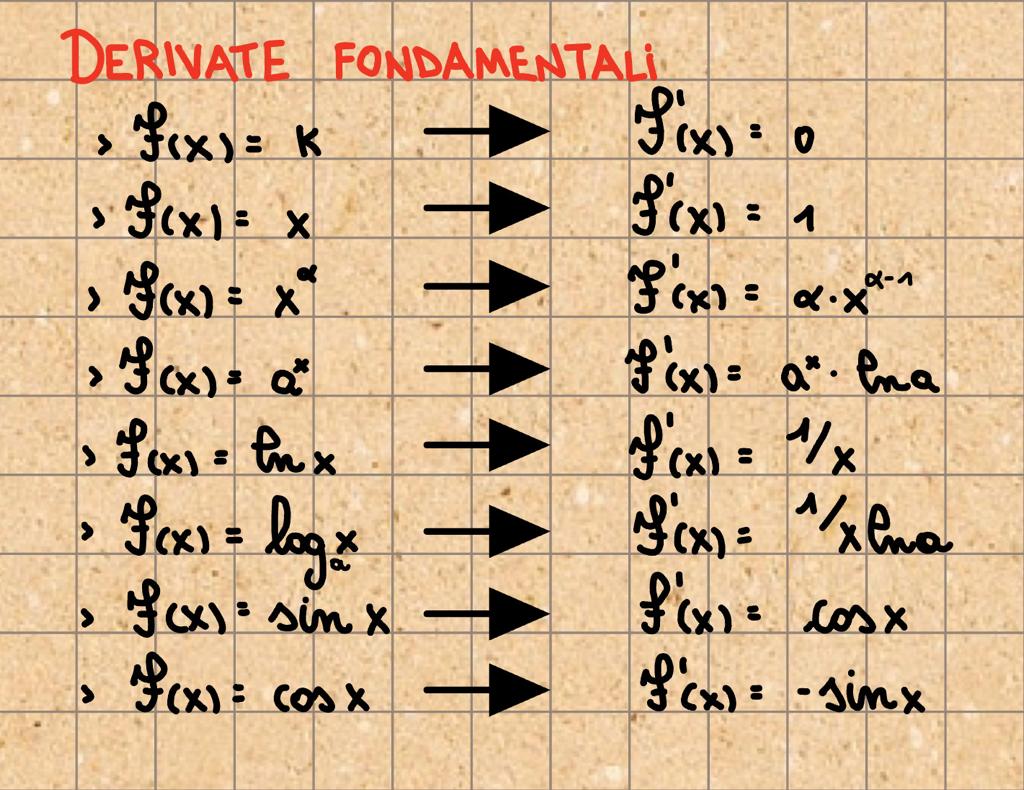 DERIVATE FONDAMENTALI
> f(x) = K → f'(x) = 0
> f(x) = x → f'(x) = 1
> f(x) = x^α → f'(x) = α·x^(α-1)
> f(x) = a^x → f'(x) = a^x · ln a
> f(x) = ln x → f'(x) = 1/x
> f(x) = log_a x → f'(x) = 1/x ln a
> f(x) = sin x → f'(x) = cos x
> f(x) = cos x → f'(x) = -sin x